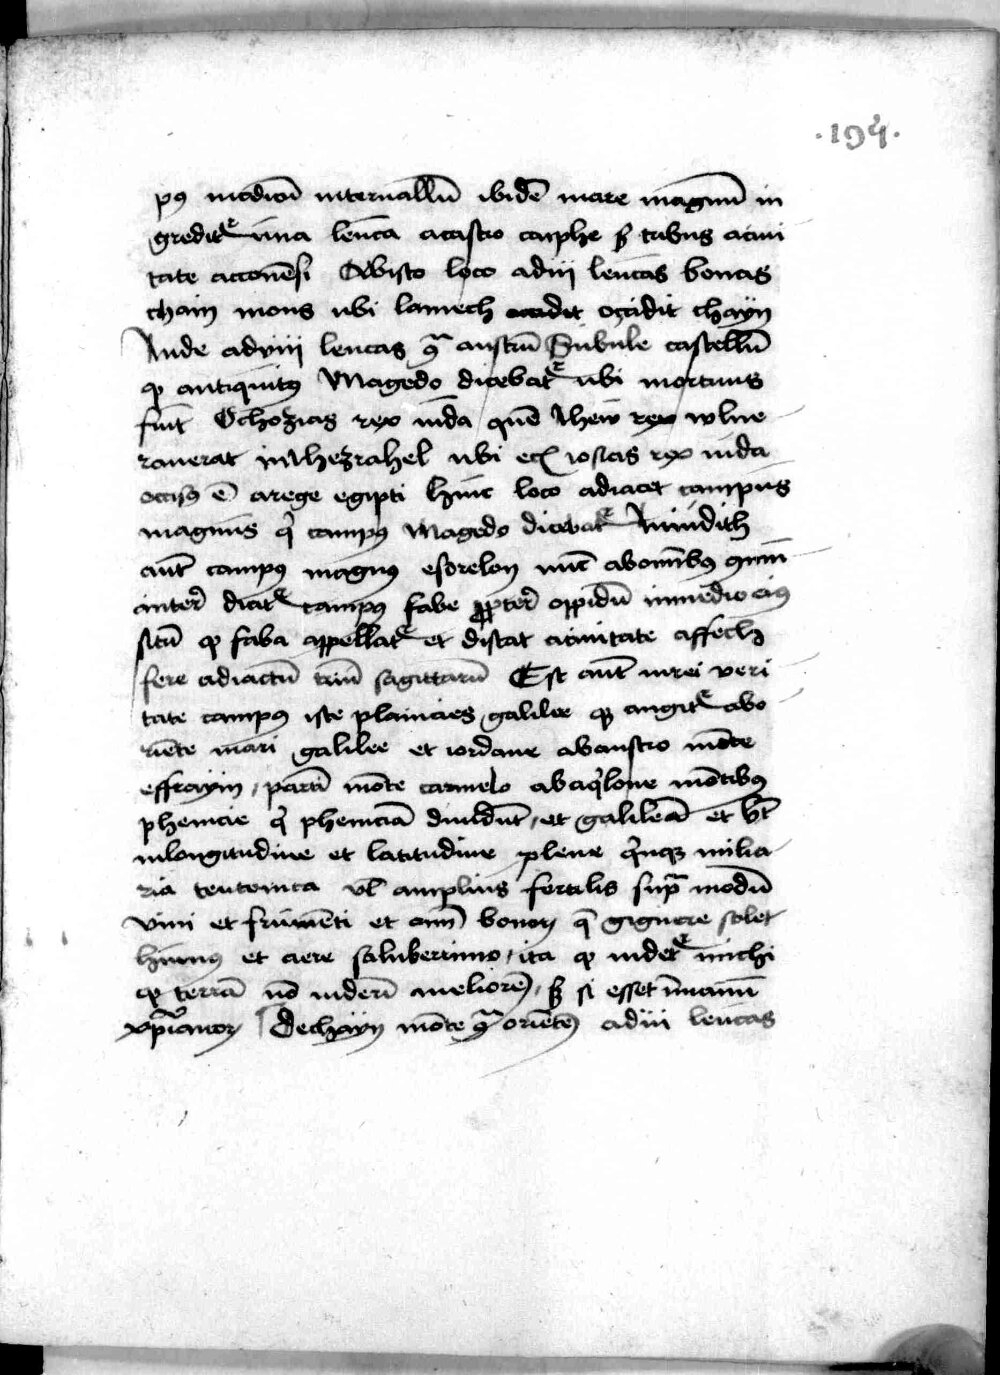 ·194·
pꝯ modicū interuallū ibidē mare magnū in
gredit᷑ una leuca a castro cayphe ꝫ tribus a ciui
tate acconēsi Ab isto loco ad iij leucas bonas
chain mons ubi lamech occidit occidit chayn
Inde ad viij leucas 9ͣ austrū Subule castellū
qͦ antiquitꝯ Magedo dicebat᷑ ubi mortuus
fuit Ochozias rex iuda quē Ihew rex wlne
rauerat in Ihezrahel ubi ecī iosias rex iuda
occisꝯ ē a rege egipti huic loco adiacet campus
magnus qͥ campꝯ Magedo dicebat᷑ In iudith
aut̄ campꝯ magnꝯ esdrelon nūc ab om̄ibꝯ
dicit᷑ campꝯ fabe ꝓpter oppidū in medio eiꝯ
sitū qͦ faba appellat᷑ et distat a ciuitate affech
fere ad iactū triū sagittarū Est aut̄ in rei veri
tate campꝯ iste planicies galilee qͣ angit᷑ ab o
riēte mari galilee et iordane ab austro mōte
effrayin, parti mōte carmelo ab aqͥlone mōtibꝯ
phenicie qͥ pheniciā diuidūt, et galileā et hꝫ
in longitudine et latitudine plene qͥnqꝫ milia
ria teutonica ul̄ amplius fertilis supͣ modū
vini et frumēti et om̄ bonoꝝ q̄ gignere solet
humus et aere saluberrimo, ita qͦ uidet᷑ michi
qͦ terrā nō uiderī meliorē, ꝫ si esset ī manū
xp̄ianoꝝ De chayn mōte 9ͣ oriētē ad iij leucas